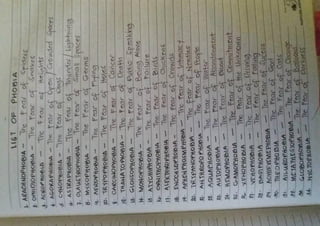 LIST OF PHOBIA
1. ARACHNOPHOBIA - The Fear of Spiders
2. OPHIDIOPHOBIA - The Fear of Snakes
3. ACROPHOBIA - The Fear of Heights
4. AGORAPHOBIA - The Fear of Open / Crowded Spaces
5. CYNOPHOBIA - The Fear of Dogs
6. ASTRAPHOBIA - The Fear of Thunder / Lightning
7. CLAUSTROPHOBIA - The Fear of Small Spaces
8. MYSOPHOBIA - The Fear of Germs
9. AEROPHOBIA - The Fear of Flying
10. TRYPOPHOBIA - The Fear of Holes
11. CARCINOPHOBIA - The Fear of Cancer
12. THANATOPHOBIA - The Fear of Death
13. GLOSSOPHOBIA - The Fear of Public Speaking
14. MONOPHOBIA - The Fear of Being Alone
15. ATYCHIPHOBIA - The Fear of Failure
16. ORNITHOPHOBIA - The Fear of Birds
17. ALEKTOROPHOBIA - The Fear of Chickens
18. ENOCHLOPHOBIA - The Fear of Crowds
19. The Fear of Intimacy
20. TRYPANOPHOBIA - The Fear of Needles
21. ANTHROPOPHOBIA - The Fear of People
22. AQUAPHOBIA - The Fear of Water
23. AUTOPHOBIA - The Fear of Abandonment
24. The Fear of Blood
25. GAMOPHOBIA - The Fear of Commitment
26. XENOPHOBIA - The Fear of the Unknown
27. VEHOPHOBIA - The Fear of Driving
28. BASIPHOBIA - The Fear of Falling
29. The Fear of Success
30. THEOPHOBIA - The Fear of God
31. AILUROPHOBIA - The Fear of Cats
32. METATHESIOPHOBIA - The Fear of Change
33. GLOBOPHOBIA - The Fear of Balloons
34. NYCTOPHOBIA - The Fear of Darkness